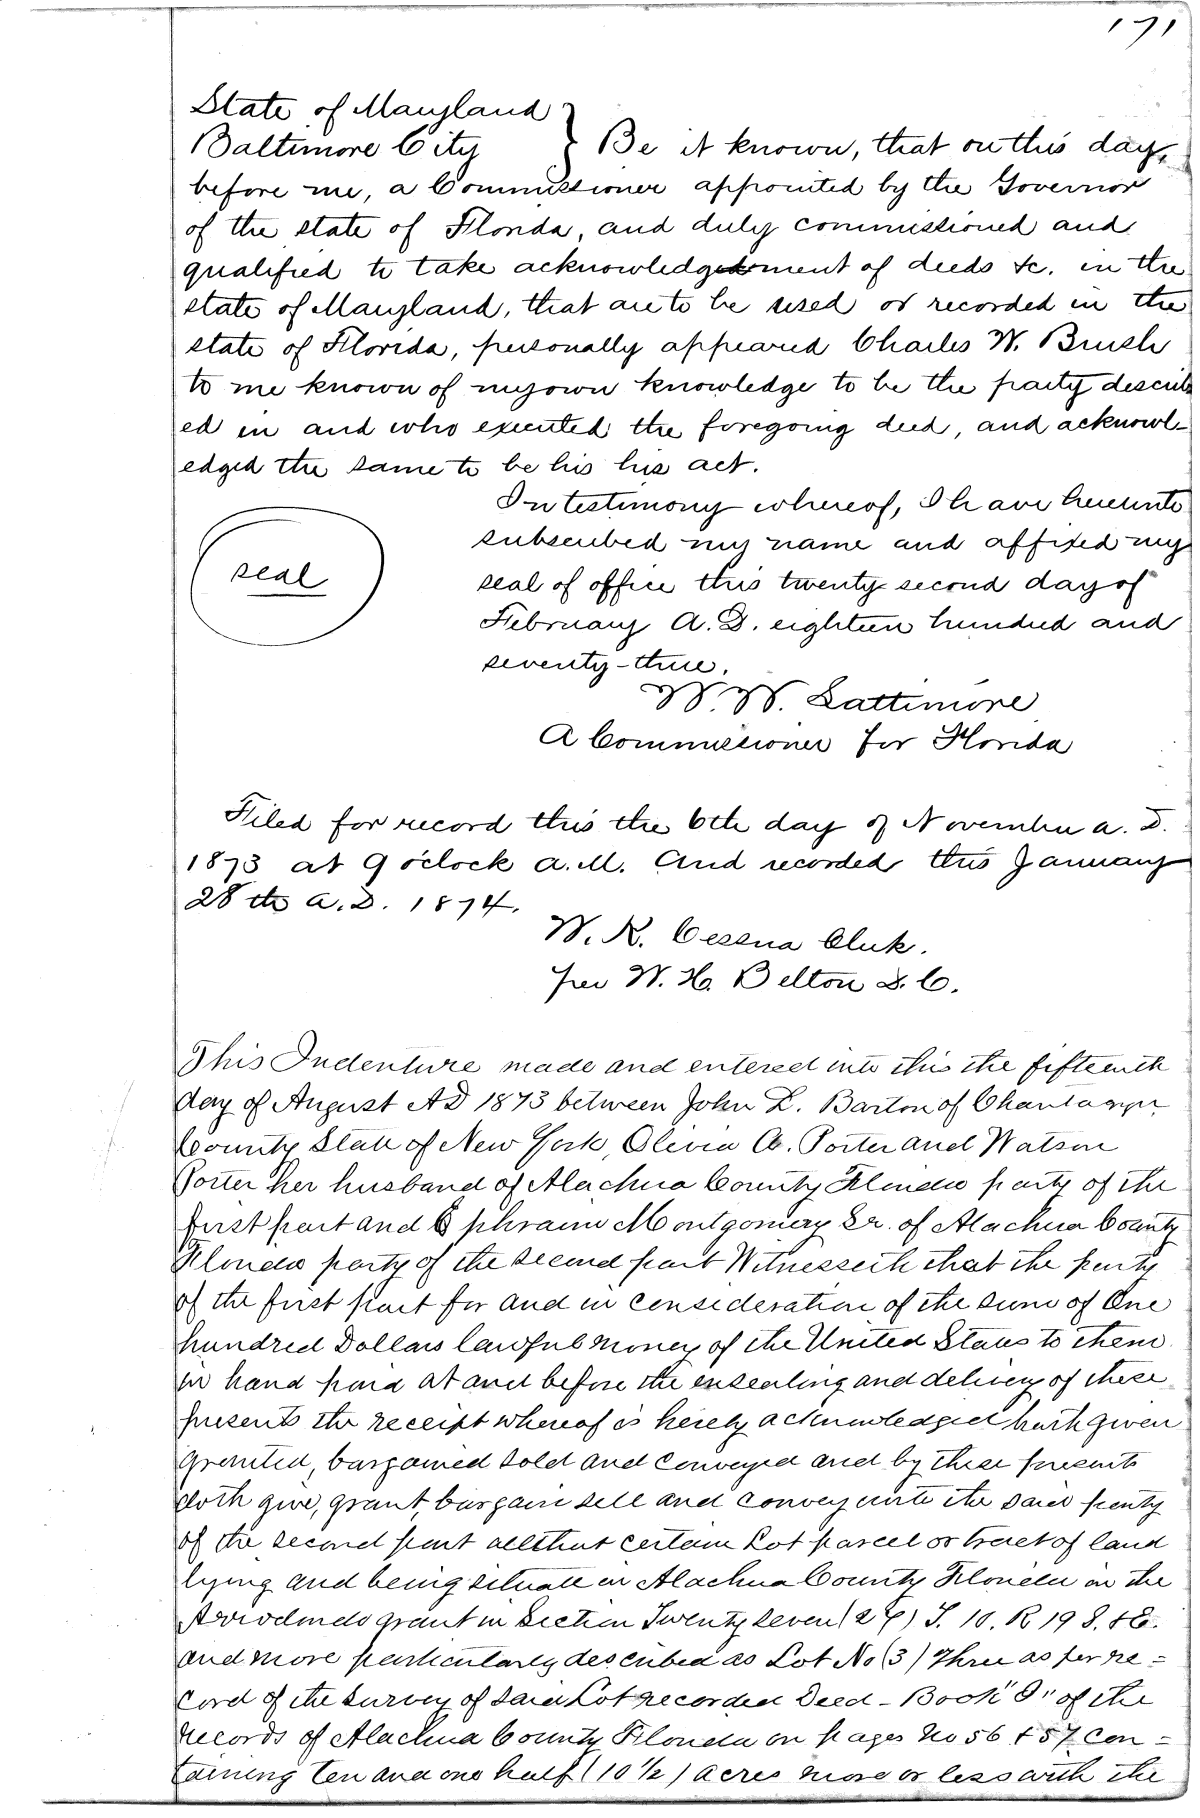 171
State of Maryland
Baltimore City } Be it known, that on this day,
before me, a Commissioner appointed by the Governor
of the state of Florida, and duly commissioned and
qualified to take acknowledgedment of deeds &c. in the
state of Maryland, that are to be used or recorded in the
state of Florida, personally appeared Charles W. Brush
to me known of my own knowledge to be the party describ
ed in and who executed the foregoing deed, and acknowl-
edged the same to be his his act.
In testimony whereof, I have hereunto
subscribed my name and affixed my
seal
seal of office this twenty second day of
February A.D. eighteen hundred and
seventy-three.
W. W. Lattimore
A Commissioner for Florida
Filed for record this the 6th day of November A.D.
1873 at 9 o'clock A.M. And recorded this January
28th A.D. 1874.
W. K. Cessna Clerk.
per W. H. Belton D.C.
This Indenture made and entered into this the fifteenth
day of August AD 1873 between John L. Barton of
County State of New York, Olivia A. Porter and Watson
Porter her husband of Alachua County Florida party of the
first part and Ephraim Montgomery Sr. of Alachua County
Florida party of the second part Witnesseth that the party
of the first part for and in consideration of the sum of One
hundred Dollars lawful money of the United States to them
in hand paid at and before the ensealing and delivery of these
presents the receipt whereof is hereby acknowledged hath given
granted, bargained sold and conveyed and by these presents
doth give, grant, bargain sell and convey unto the said party
of the second part all that certain Lot parcel or tract of land
lying and being situate in Alachua County Florida in the
Arrodondo grant in Section Twenty seven (27) T. 10. R 19 S. & E.
and more particularly described as Lot No (3) Three as per re=
cord of the Survey of said Lot recorded Deed-Book "I" of the
records of Alachua County Florida on pages No 56 & 57 con=
taining ten and one half (10 1/2) acres more or less with the